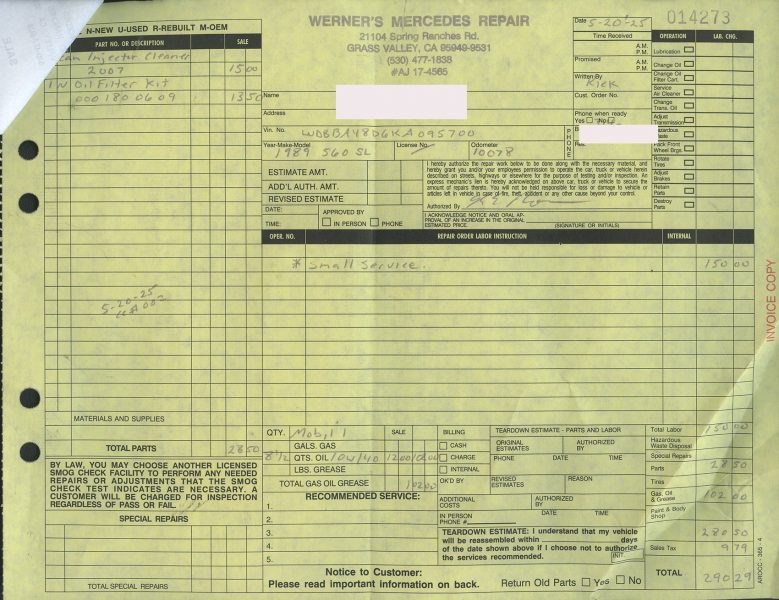 N-NEW U-USED R-REBUILT M-OEM
PART NO. OR DESCRIPTION SALE
Injector Cleaner
2007 15 00
1 N Oil Filter Kit
000 180 06 09 13 50
5-20-25
MATERIALS AND SUPPLIES
TOTAL PARTS 28 50
BY LAW, YOU MAY CHOOSE ANOTHER LICENSED
SMOG CHECK FACILITY TO PERFORM ANY NEEDED
REPAIRS OR ADJUSTMENTS THAT THE SMOG
CHECK TEST INDICATES ARE NECESSARY. A
CUSTOMER WILL BE CHARGED FOR INSPECTION
REGARDLESS OF PASS OR FAIL.
SPECIAL REPAIRS
TOTAL SPECIAL REPAIRS
WERNER'S MERCEDES REPAIR
21104 Spring Ranches Rd.
GRASS VALLEY, CA 95949-9531
(530) 477-1838
#AJ 17-4565
Name
Address
Vin. No. WDBBA48D6KA095700
Year-Make-Model License No. Odometer
1989 560 SL 10078
Date 5-20-25
014273
Time Received
A.M.
P.M.
Promised A.M.
P.M.
Written By
Rick
Cust. Order No.
Phone when ready
Yes No
PHONE
Bus.
Res.
OPERATION LAB. CHG.
Lubrication
Change Oil
Change Oil
Filter Cart.
Service
Air Cleaner
Change
Trans. Oil
Adjust
Transmission
Hazardous
Waste
Pack Front
Wheel Brgs.
Rotate
Tires
Adjust
Brakes
Retain
Parts
Destroy
Parts
ESTIMATE AMT.
ADD'L AUTH. AMT.
REVISED ESTIMATE
DATE: APPROVED BY
TIME: IN PERSON PHONE
I hereby authorize the repair work below to be done along with the necessary material, and
hereby grant you and/or your employees permission to operate the car, truck or vehicle herein
described on streets, highways or elsewhere for the purpose of testing and/or inspection. An
express mechanic's lien is hereby acknowledged on above car, truck or vehicle to secure the
amount of repairs thereto. You will not be held responsible for loss or damage to vehicle or
articles left in vehicle in case of fire, theft, accident or any other cause beyond your control.
Authorized By
I ACKNOWLEDGE NOTICE AND ORAL AP-
PROVAL OF AN INCREASE IN THE ORIGINAL
ESTIMATED PRICE. (SIGNATURE OR INITIALS)
OPER. NO. REPAIR ORDER LABOR INSTRUCTION INTERNAL
* Small Service. 150 00
INVOICE COPY
QTY. Mobil 1 SALE
GALS. GAS
8 1/2 QTS. OIL 10w/40 1200 102 00
LBS. GREASE
TOTAL GAS OIL GREASE 102 00
BILLING
CASH
CHARGE
INTERNAL
OK'D BY
ADDITIONAL
COSTS
IN PERSON
PHONE #
TEARDOWN ESTIMATE - PARTS AND LABOR
ORIGINAL
ESTIMATES AUTHORIZED
BY
PHONE DATE TIME
REVISED
ESTIMATES REASON
AUTHORIZED
BY
DATE TIME
TEARDOWN ESTIMATE: I understand that my vehicle
will be reassembled within days
of the date shown above if I choose not to authorize
the services recommended. INIT.
RECOMMENDED SERVICE:
1.
2.
3.
4.
5.
Notice to Customer:
Please read important information on back.
Return Old Parts Yes No
Total Labor 150 00
Hazardous
Waste Disposal
Special Repairs
Parts 28 50
Tires
Gas, Oil
& Grease 102 00
Paint & Body
Shop
280 50
Sales Tax 9 79
TOTAL 290 29
AROCC - 365 - 4